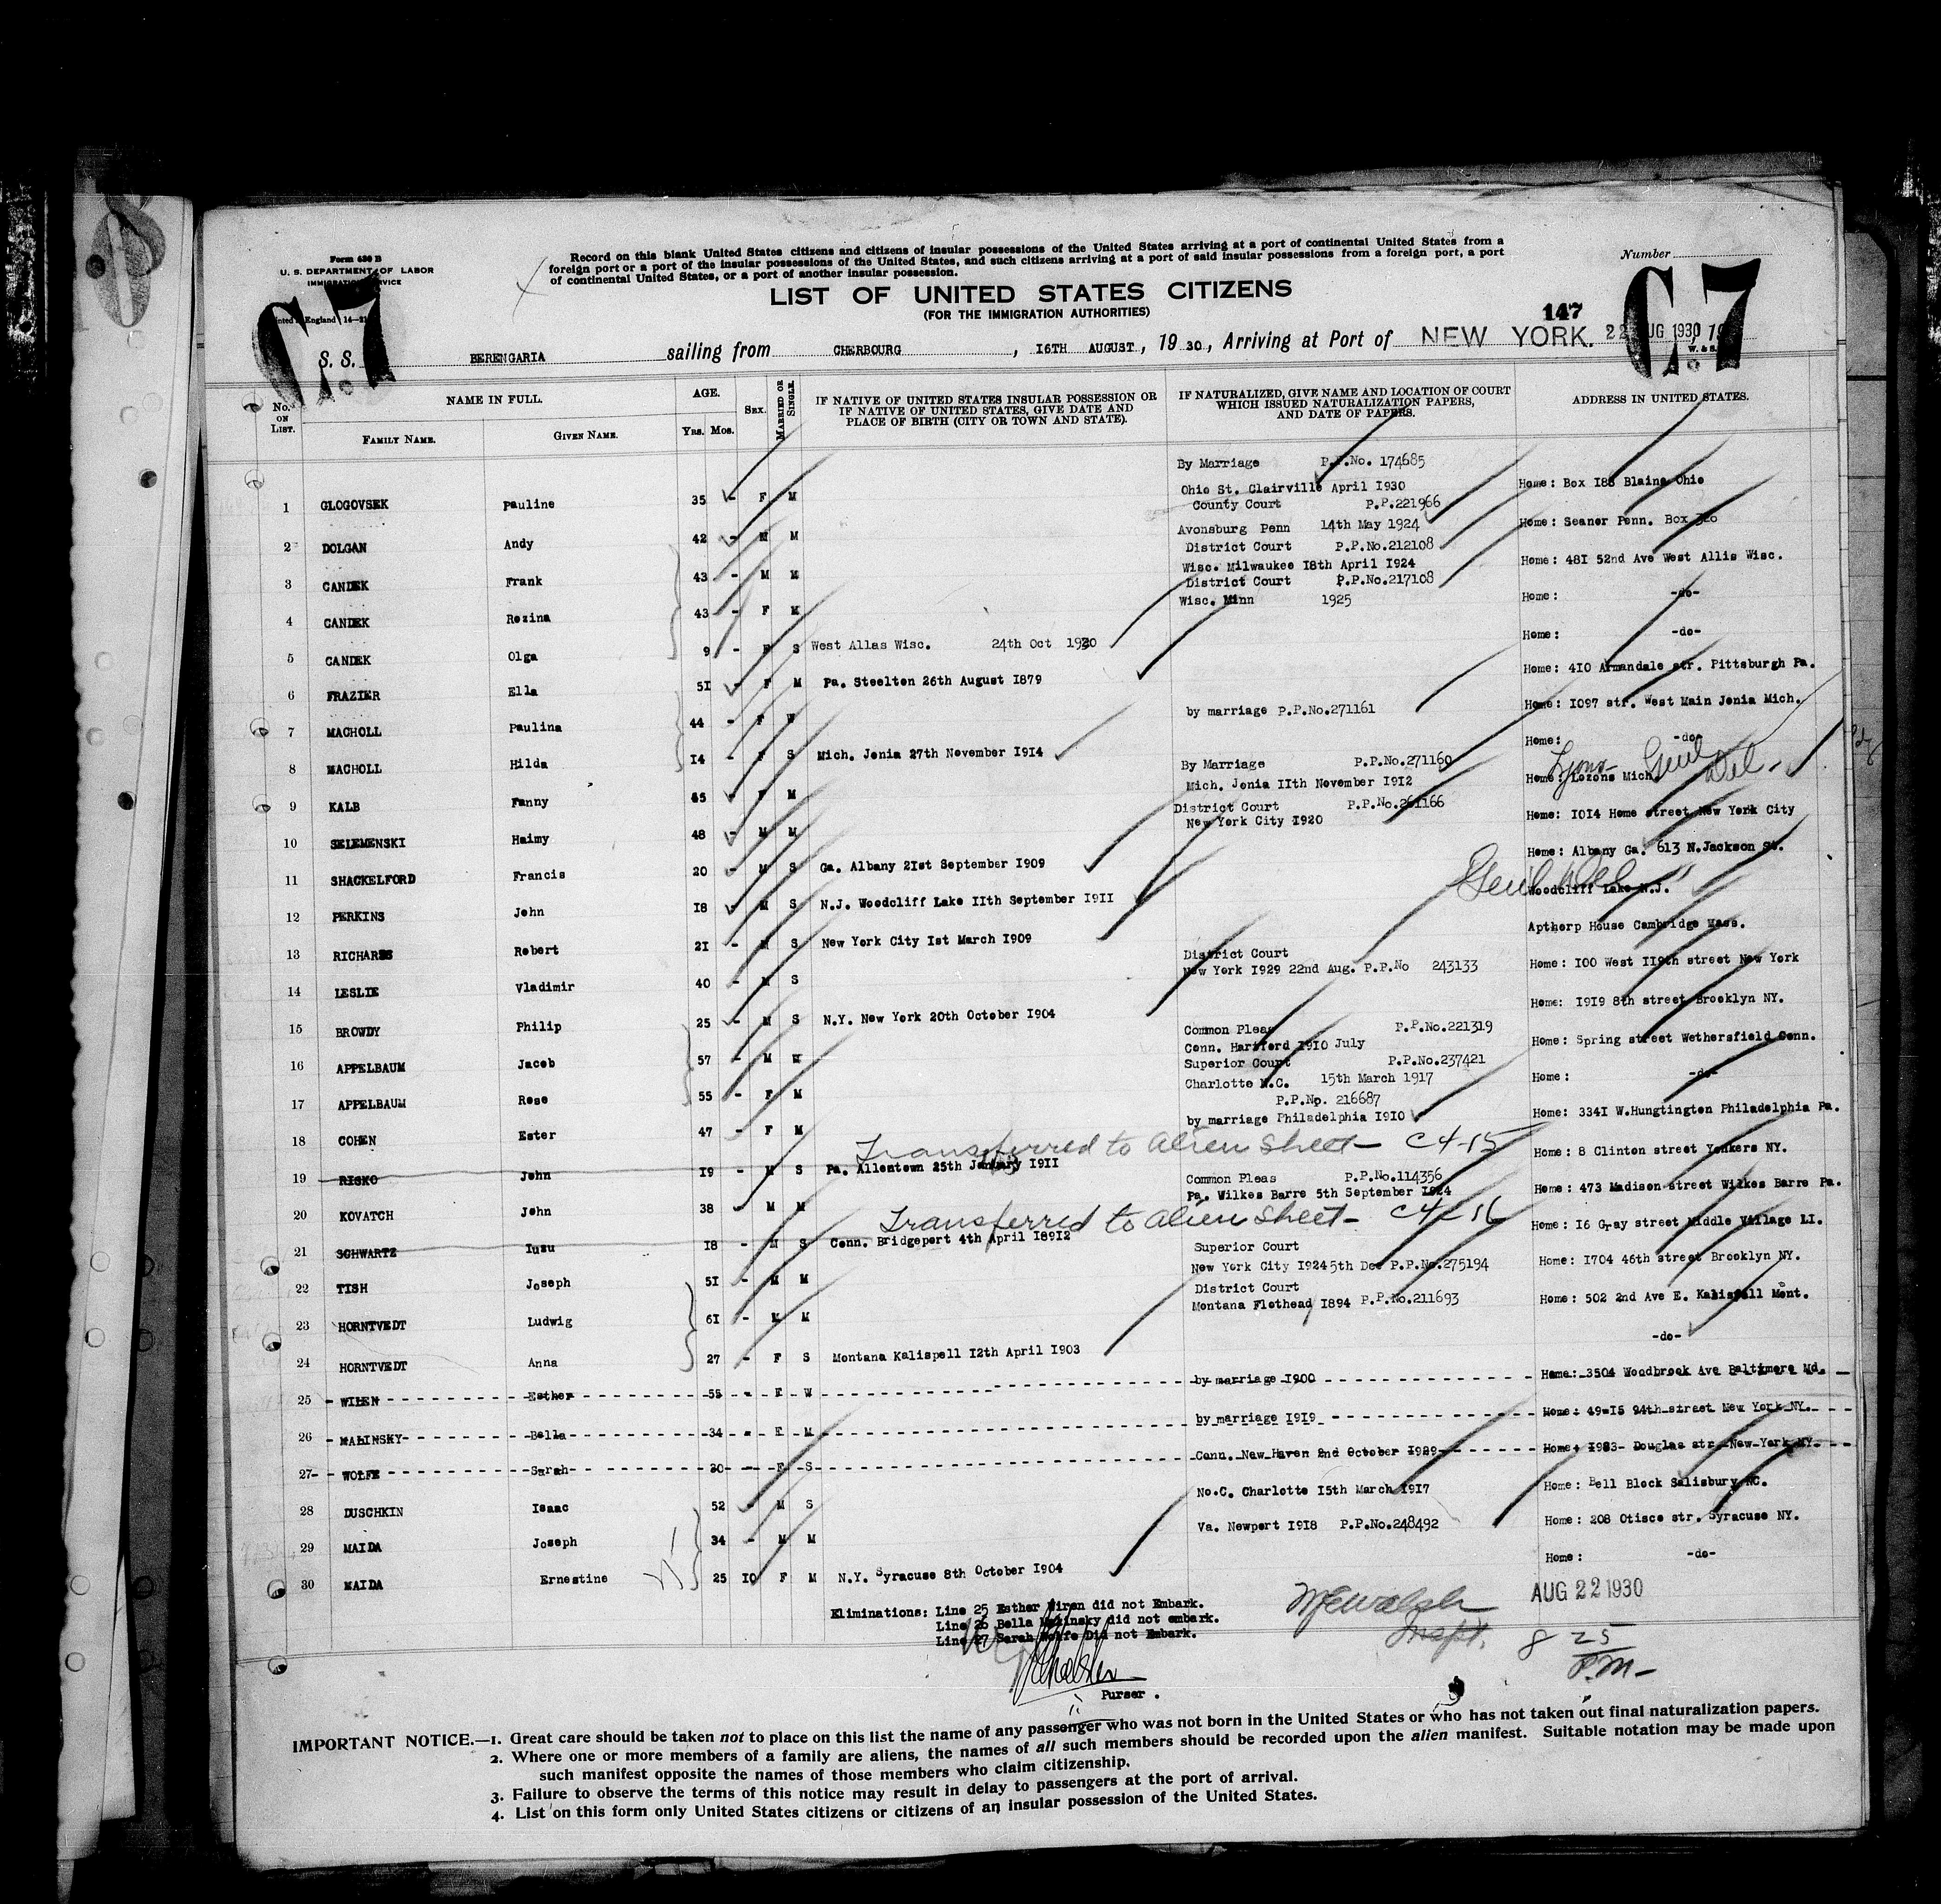 Form 630 B
U. S. DEPARTMENT OF LABOR
IMMIGRATION SERVICE
Record on this blank United States citizens and citizens of insular possessions of the United States arriving at a port of continental United States from a
foreign port or a port of the insular possessions of the United States, and such citizens arriving at a port of said insular possessions from a foreign port, a port
of continental United States, or a port of another insular possession.
Number
C.7
C.7
LIST OF UNITED STATES CITIZENS
(FOR THE IMMIGRATION AUTHORITIES)
147
S. S. BERENGARIA sailing from CHERBOURG, 16TH AUGUST, 1930, Arriving at Port of NEW YORK. 22 AUG 1930
No. ON LIST.
NAME IN FULL.
FAMILY NAME.
GIVEN NAME.
AGE.
Yrs. Mos.
SEX.
MARRIED OR SINGLE.
IF NATIVE OF UNITED STATES INSULAR POSSESSION OR
IF NATIVE OF UNITED STATES, GIVE DATE AND
PLACE OF BIRTH (CITY OR TOWN AND STATE).
IF NATURALIZED, GIVE NAME AND LOCATION OF COURT
WHICH ISSUED NATURALIZATION PAPERS,
AND DATE OF PAPERS.
ADDRESS IN UNITED STATES.
1 GLOGOVSEK Pauline 35 - F M By Marriage P.P.No. 174685 Home: Box 188 Blaine Ohio
Ohio St. Clairville April 1930
2 DOLGAN Andy 42 - M M County Court P.P.221966 Home: Seanor Penn. Box 320
Avonsburg Penn 14th May 1924
3 CANDEK Frank 43 - M M District Court P.P.No.212108 Home: 481 52nd Ave West Allis Wisc.
Wisc. Milwaukee 18th April 1924
4 CANDEK Rozina 43 - F M District Court P.P.No.217108 Home: -do-
Wisc. Minn 1925
5 CANDEK Olga 9 - F S West Allas Wisc. 24th Oct 1920 Home: -do-
6 FRAZIER Ella 51 - F M Pa. Steelton 26th August 1879 Home: 410 Armandale str. Pittsburgh Pa.
7 MACHOLL Paulina 44 - F W by marriage P.P.No.271161 Home: 1097 str. West Main Jenia Mich.
8 MACHOLL Hilda 14 - F S Mich. Jenia 27th November 1914 Home: -do-
9 KALB Fanny 45 - F M By Marriage P.P.No.271160 Home: Lozons Mich Lyons Genl Del.
Mich. Jenia 11th November 1912
10 SELEMENSKI Haimy 48 - M M District Court P.P.No.261166 Home: 1014 Home street New York City
New York City 1920
11 SHACKELFORD Francis 20 - M S Ga. Albany 21st September 1909 Home: Albany Ga. 613 N.Jackson St.
12 PERKINS John 18 - M S N.J. Woodcliff Lake 11th September 1911 Genl Del Woodcliff Lake N.J.
13 RICHARDS Robert 21 - M S New York City 1st March 1909 Apthorp House Cambridge Mass.
14 LESLIE Vladimir 40 - M S District Court Home: 100 West 119th street New York
New York 1929 22nd Aug. P.P.No 243133
15 BROWDY Philip 25 - M S N.Y. New York 20th October 1904 Home: 1919 8th street Brooklyn NY.
16 APPELBAUM Jacob 57 - M M Common Pleas P.P.No.221319 Home: Spring street Wethersfield Conn.
Conn. Hartford 1910 July
17 APPELBAUM Rose 55 - F M Superior Court P.P.No.237421 Home: -do-
Charlotte N.C. 15th March 1917
18 COHEN Ester 47 - F M P.P.No. 216687 Home: 3341 W.Hungtington Philadelphia Pa.
by marriage Philadelphia 1910
Transferred to alien sheet - C4-15
19 RISKO John 19 - M S Pa. Allentown 25th January 1911 Home: 8 Clinton street Yonkers NY.
20 KOVATCH John 38 M M Common Pleas P.P.No.114356 Home: 473 Madison street Wilkes Barre Pa.
Pa. Wilkes Barre 5th September 1924
Transferred to alien sheet - C4-16
21 SCHWARTZ Iuzu 18 - M S Conn. Bridgeport 4th April 18912 Home: 16 Gray street Middle Village LI.
22 TISH Joseph 51 - M M Superior Court Home: 1704 46th street Brooklyn NY.
New York City 1924 5th Dec P.P.No.275194
23 HORNTVEDT Ludwig 61 - M M District Court Home: 502 2nd Ave E. Kalispell Mont.
Montana Flethead 1894 P.P.No.211693
24 HORNTVEDT Anna 27 - F S Montana Kalispell 12th April 1903 -do-
25 WILEN Esther 55 - F W by marriage 1900 Home: 3504 Woodbrook Ave Baltimore Md.
26 MALINSKY Bella 34 - F M by marriage 1919 Home: 49-15 94th street New York NY.
27 WOLFE Sarah 20 - F S Conn. New Haven 2nd October 1929 Home: 1983 Douglas str New York NY.
28 DUSCHKIN Isaac 52 - M S No.C. Charlotte 15th March 1917 Home: Bell Block Salisbury NC.
29 MAIDA Joseph 34 - M M Va. Newport 1918 P.P.No.248492 Home: 208 Otisco str. Syracuse NY.
30 MAIDA Ernestine 25 10 F M N.Y. Syracuse 8th October 1904 Home: -do-
Eliminations: Line 25 Esther Wiren did not Embark.
Line 26 Bella Malinsky did not embark.
Line 27 Sarah Wolfe Did not Embark.
Purser.
McWalsh
Inspt.
AUG 22 1930
8 25
P.M-
IMPORTANT NOTICE.—1. Great care should be taken not to place on this list the name of any passenger who was not born in the United States or who has not taken out final naturalization papers.
2. Where one or more members of a family are aliens, the names of all such members should be recorded upon the alien manifest. Suitable notation may be made upon
such manifest opposite the names of those members who claim citizenship.
3. Failure to observe the terms of this notice may result in delay to passengers at the port of arrival.
4. List on this form only United States citizens or citizens of an insular possession of the United States.